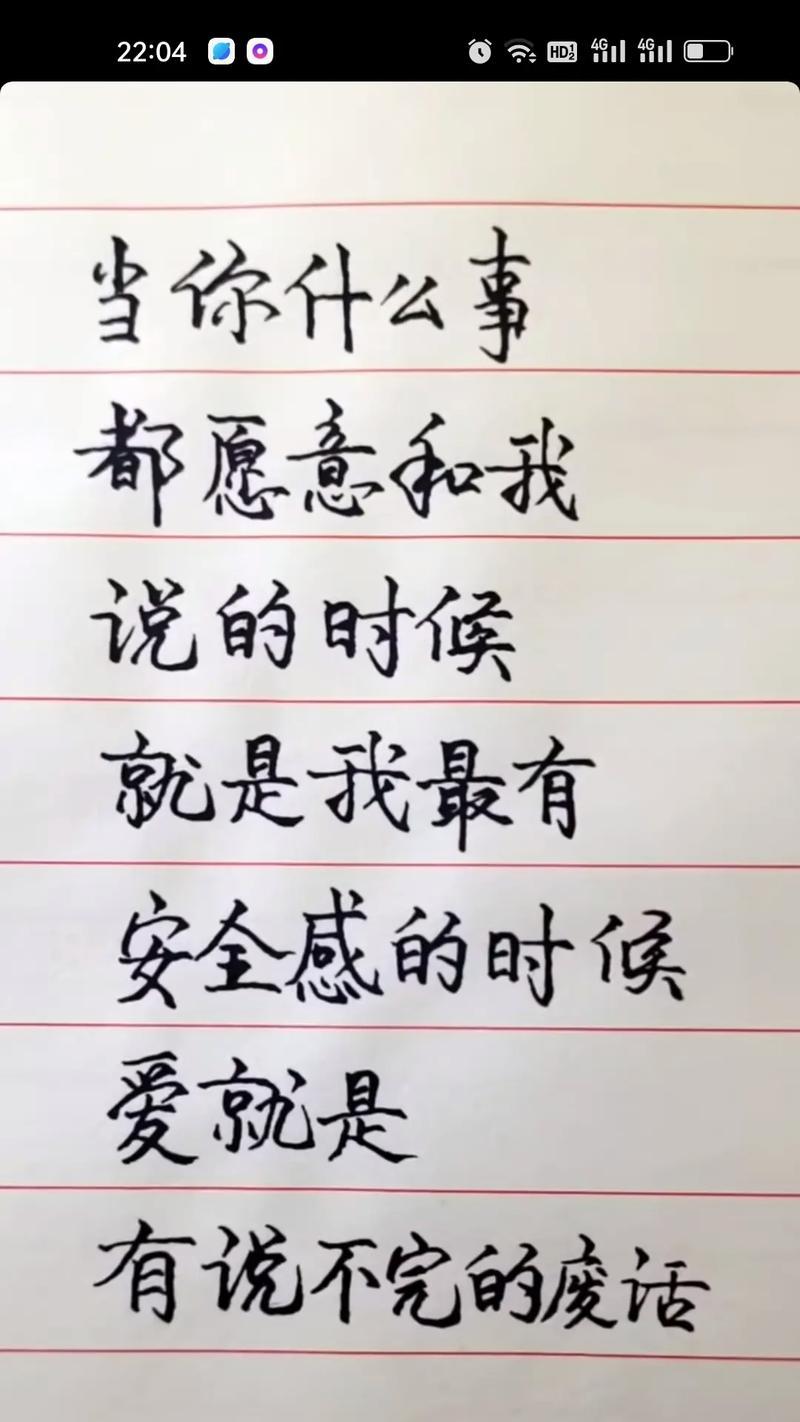 22:04 HD 1 2 4G 4G
当你什么事
都愿意和我
说的时候
就是我最有
安全感的时候
爱就是
有说不完的废话